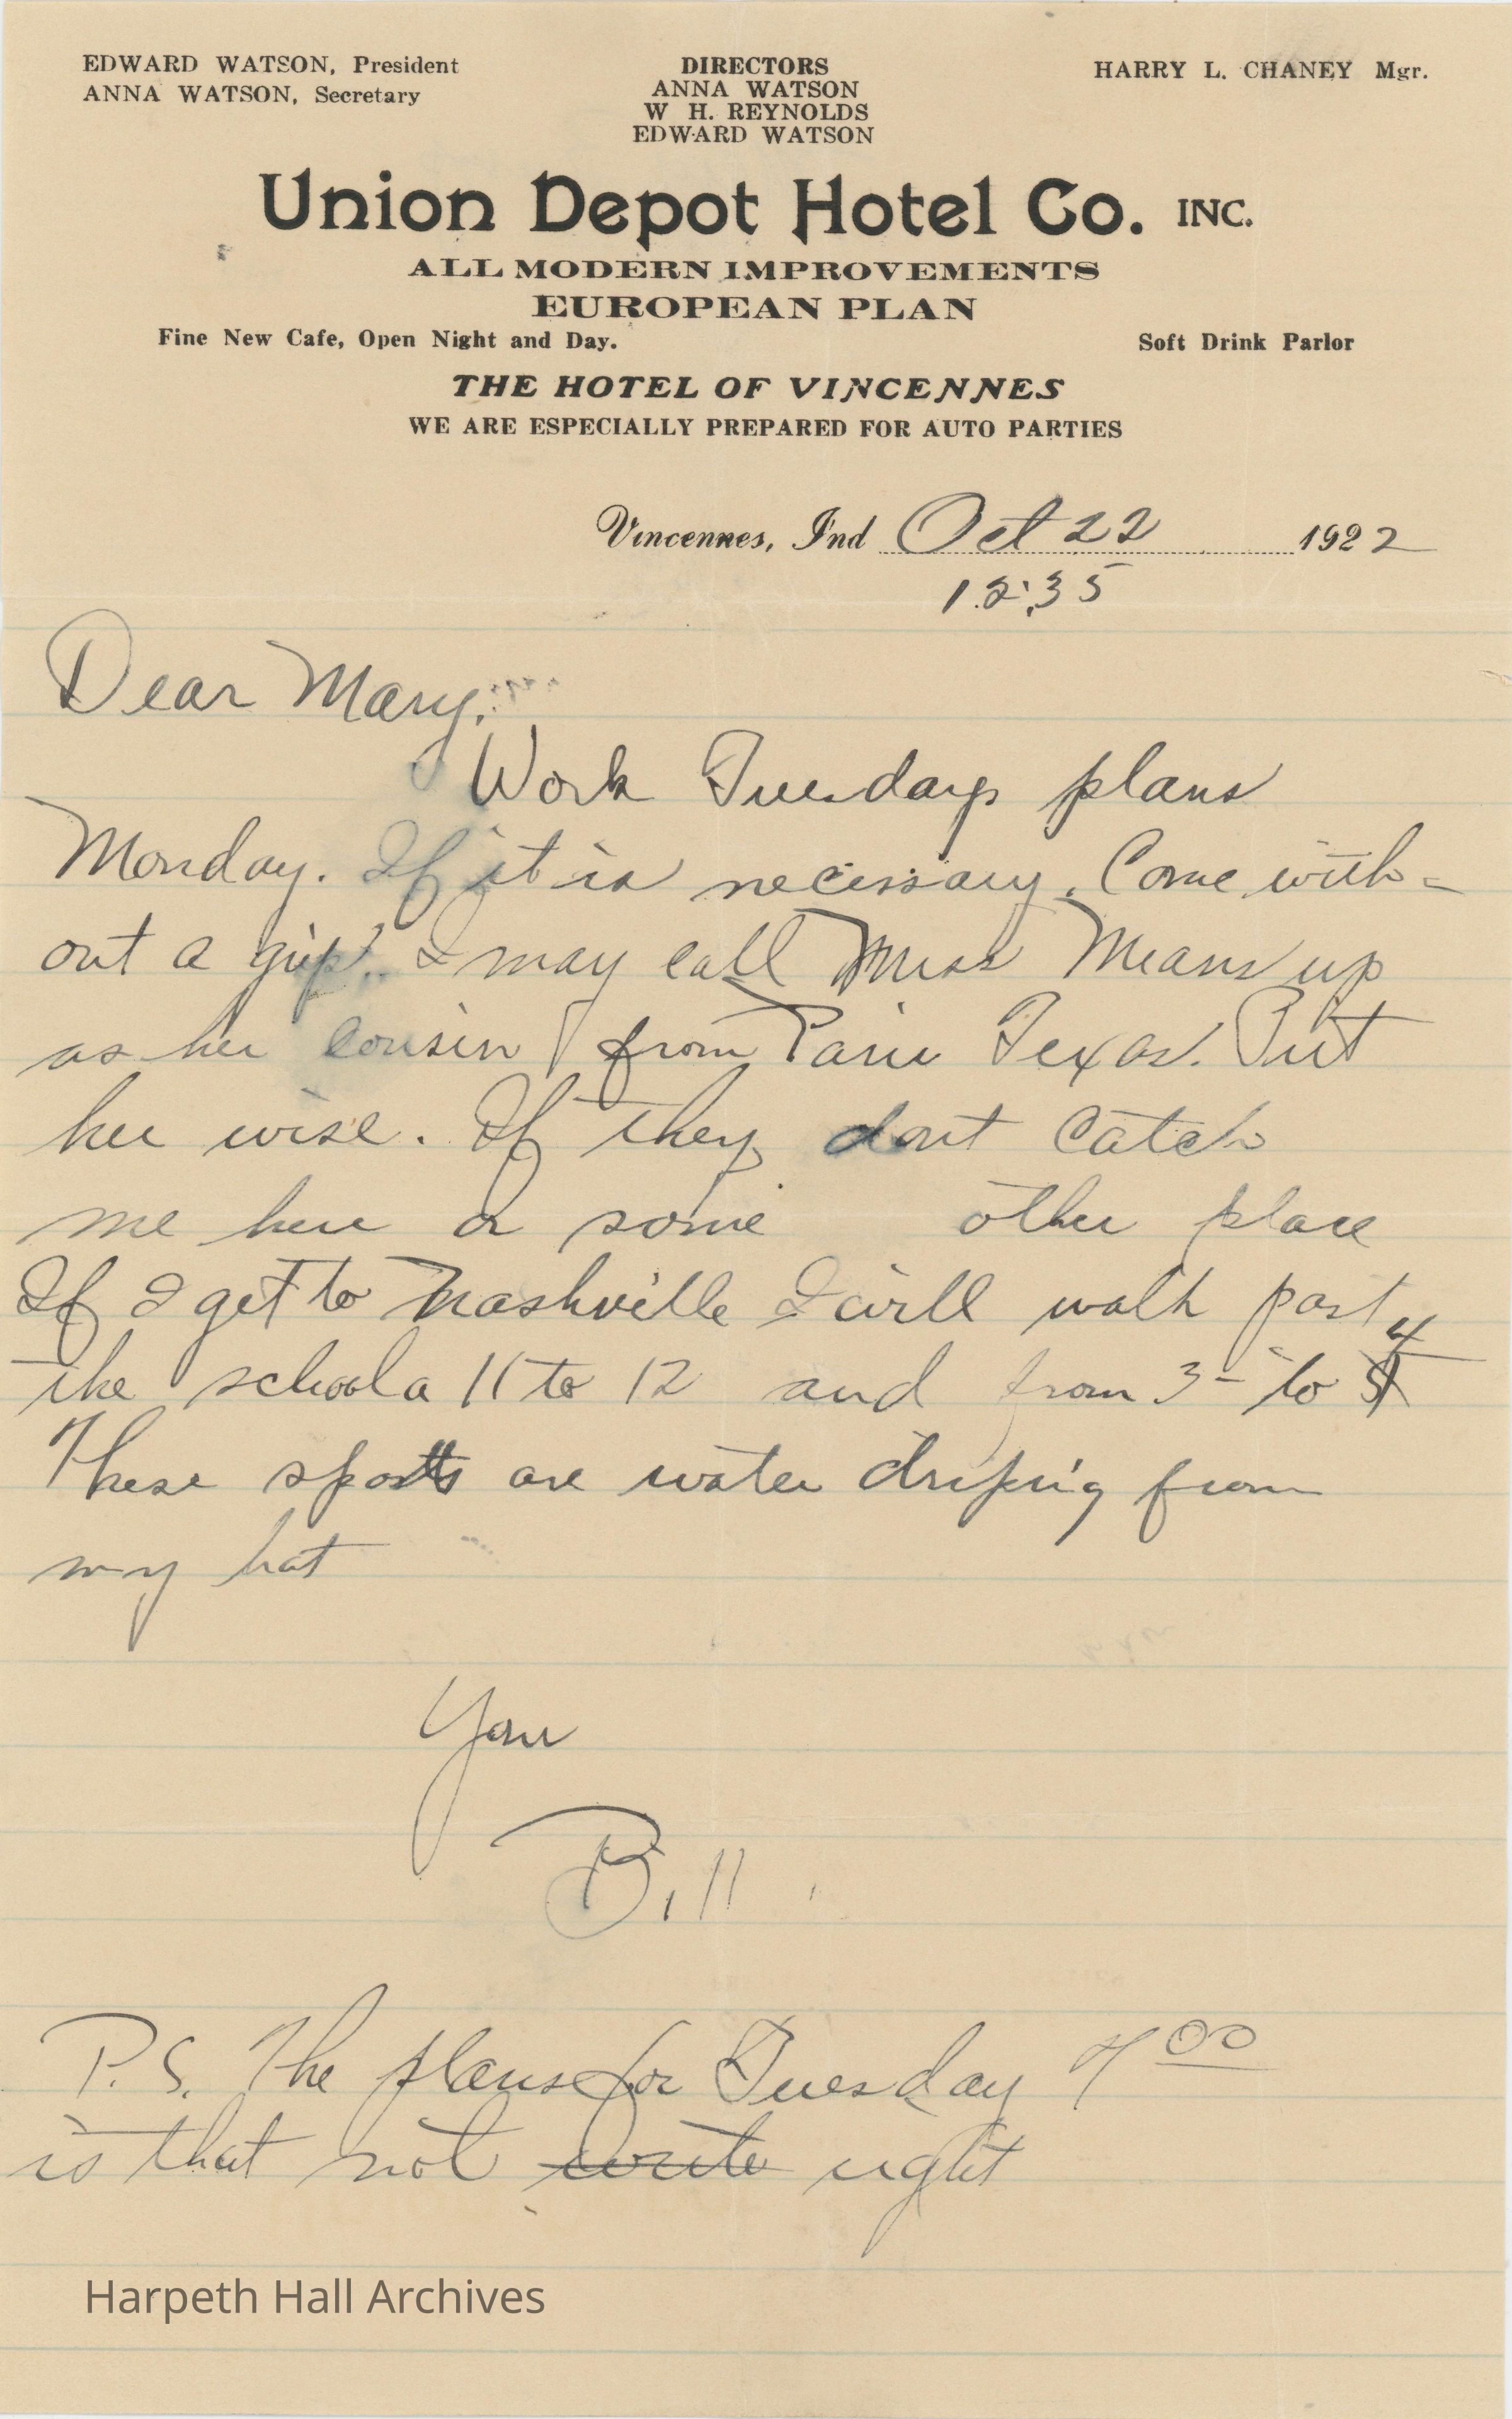 EDWARD WATSON, President
ANNA WATSON, Secretary
DIRECTORS
ANNA WATSON
W H. REYNOLDS
EDWARD WATSON
HARRY L. CHANEY Mgr.
Union Depot Hotel Co. INC.
ALL MODERN IMPROVEMENTS
EUROPEAN PLAN
Fine New Cafe, Open Night and Day.
Soft Drink Parlor
THE HOTEL OF VINCENNES
WE ARE ESPECIALLY PREPARED FOR AUTO PARTIES
Vincennes, Ind Oct 22 1922
12:35
Dear Mary:
Work Tuesdays plans
Monday. If it is necessary. Come with-
out a grip. I may call Miss Means up
as her cousin from Paris Texas. Put
her wise. If they dont catch
me here or some other place
If I get to Nashville I will walk past
the school a 11 to 12 and from 3- to 4
These spotts are water driping from
my hat
Your
Bill
P.S. The plans for Tuesday 9 00
is that not write right
Harpeth Hall Archives